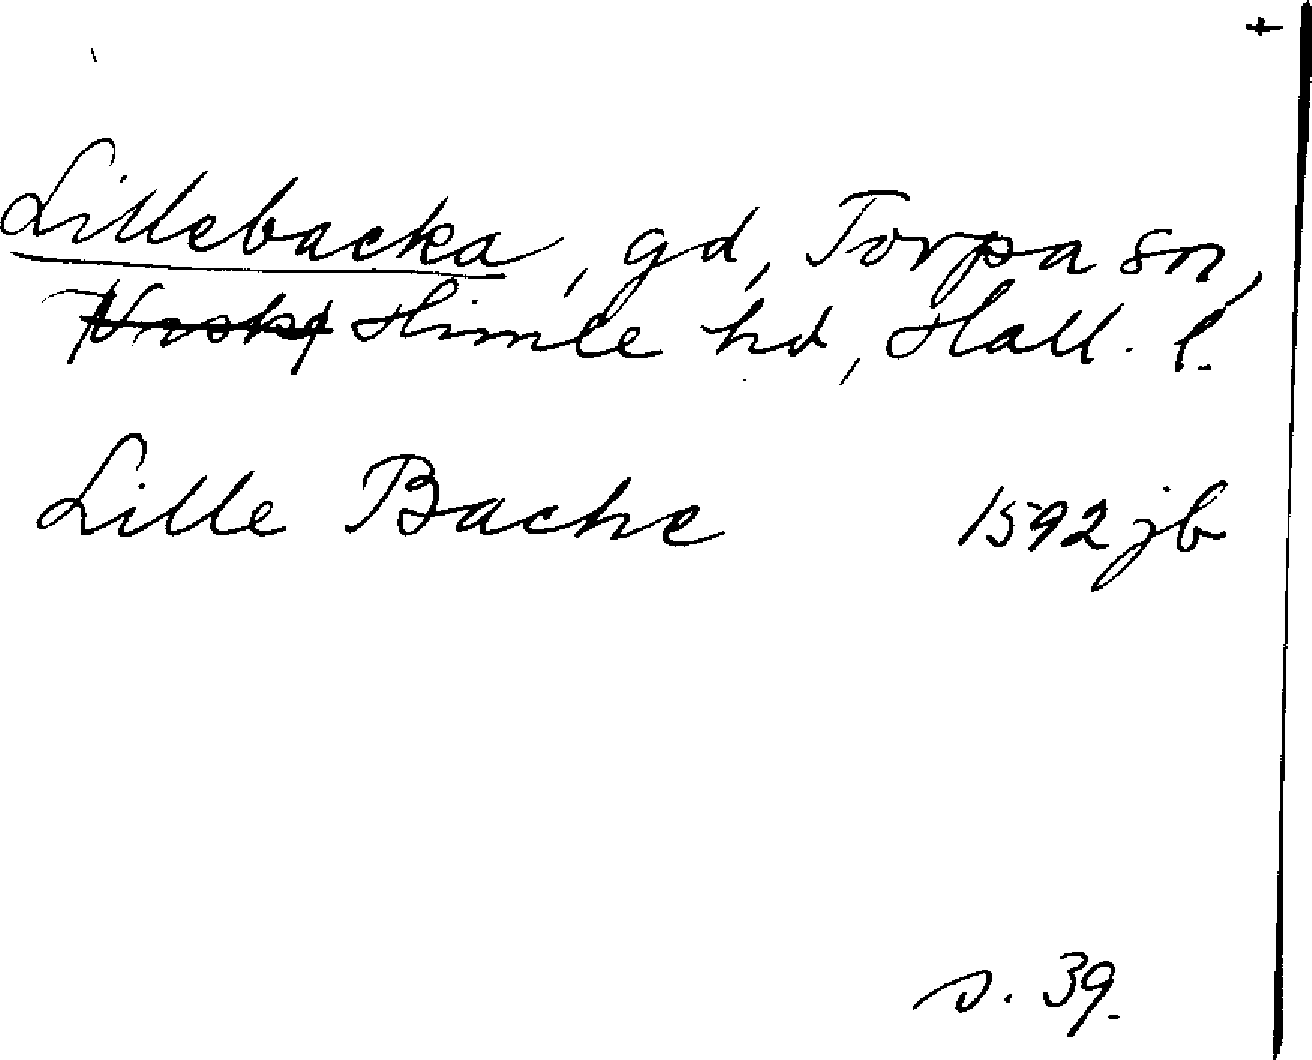 +
Lillebacka, gd, Torpa sn,
Himle hd, Hall. l.
Lille Backe 1592 jb
s. 39.